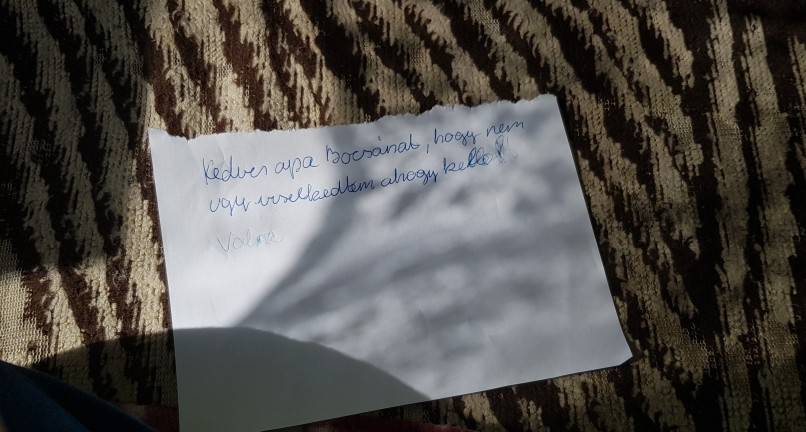 Kedves apa Bocsánat, hogy nem
úgy viselkedtem ahogy kelle!!
Volna